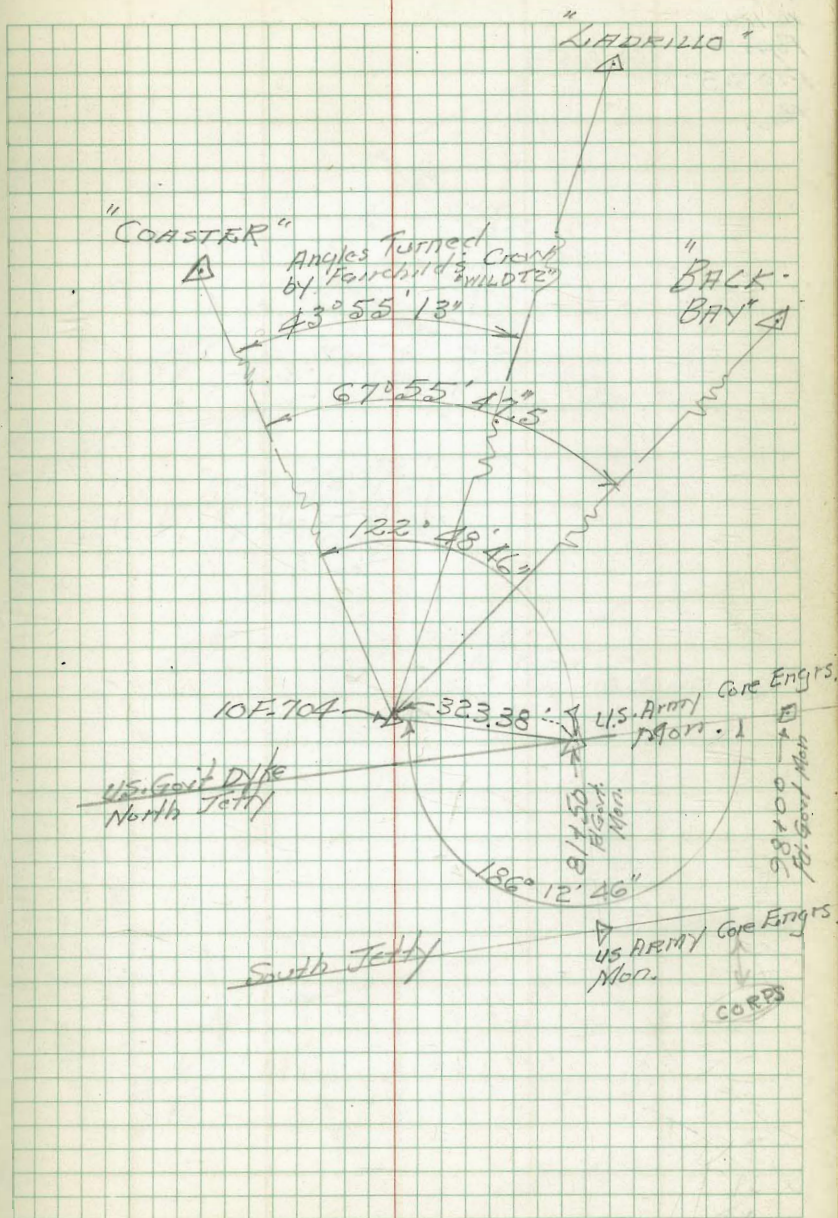 "LADRILLO"
"COASTER"
Angles Turned
by Fairchild's Crew
"WILD T2"
43° 55' 13"
"BACK-
BAY"
67° 55' 47.5"
122° 48' 46"
10F-704
323.38'
U.S. Army Core Engrs.
Mon.
U.S. Gov't Dyke
North Jetty
81+50
Fd Govt.
Mon.
98+00.4
Fd. Govt Mon
186° 12' 46"
South Jetty
US ARMY Core Engrs.
Mon.
CORPS